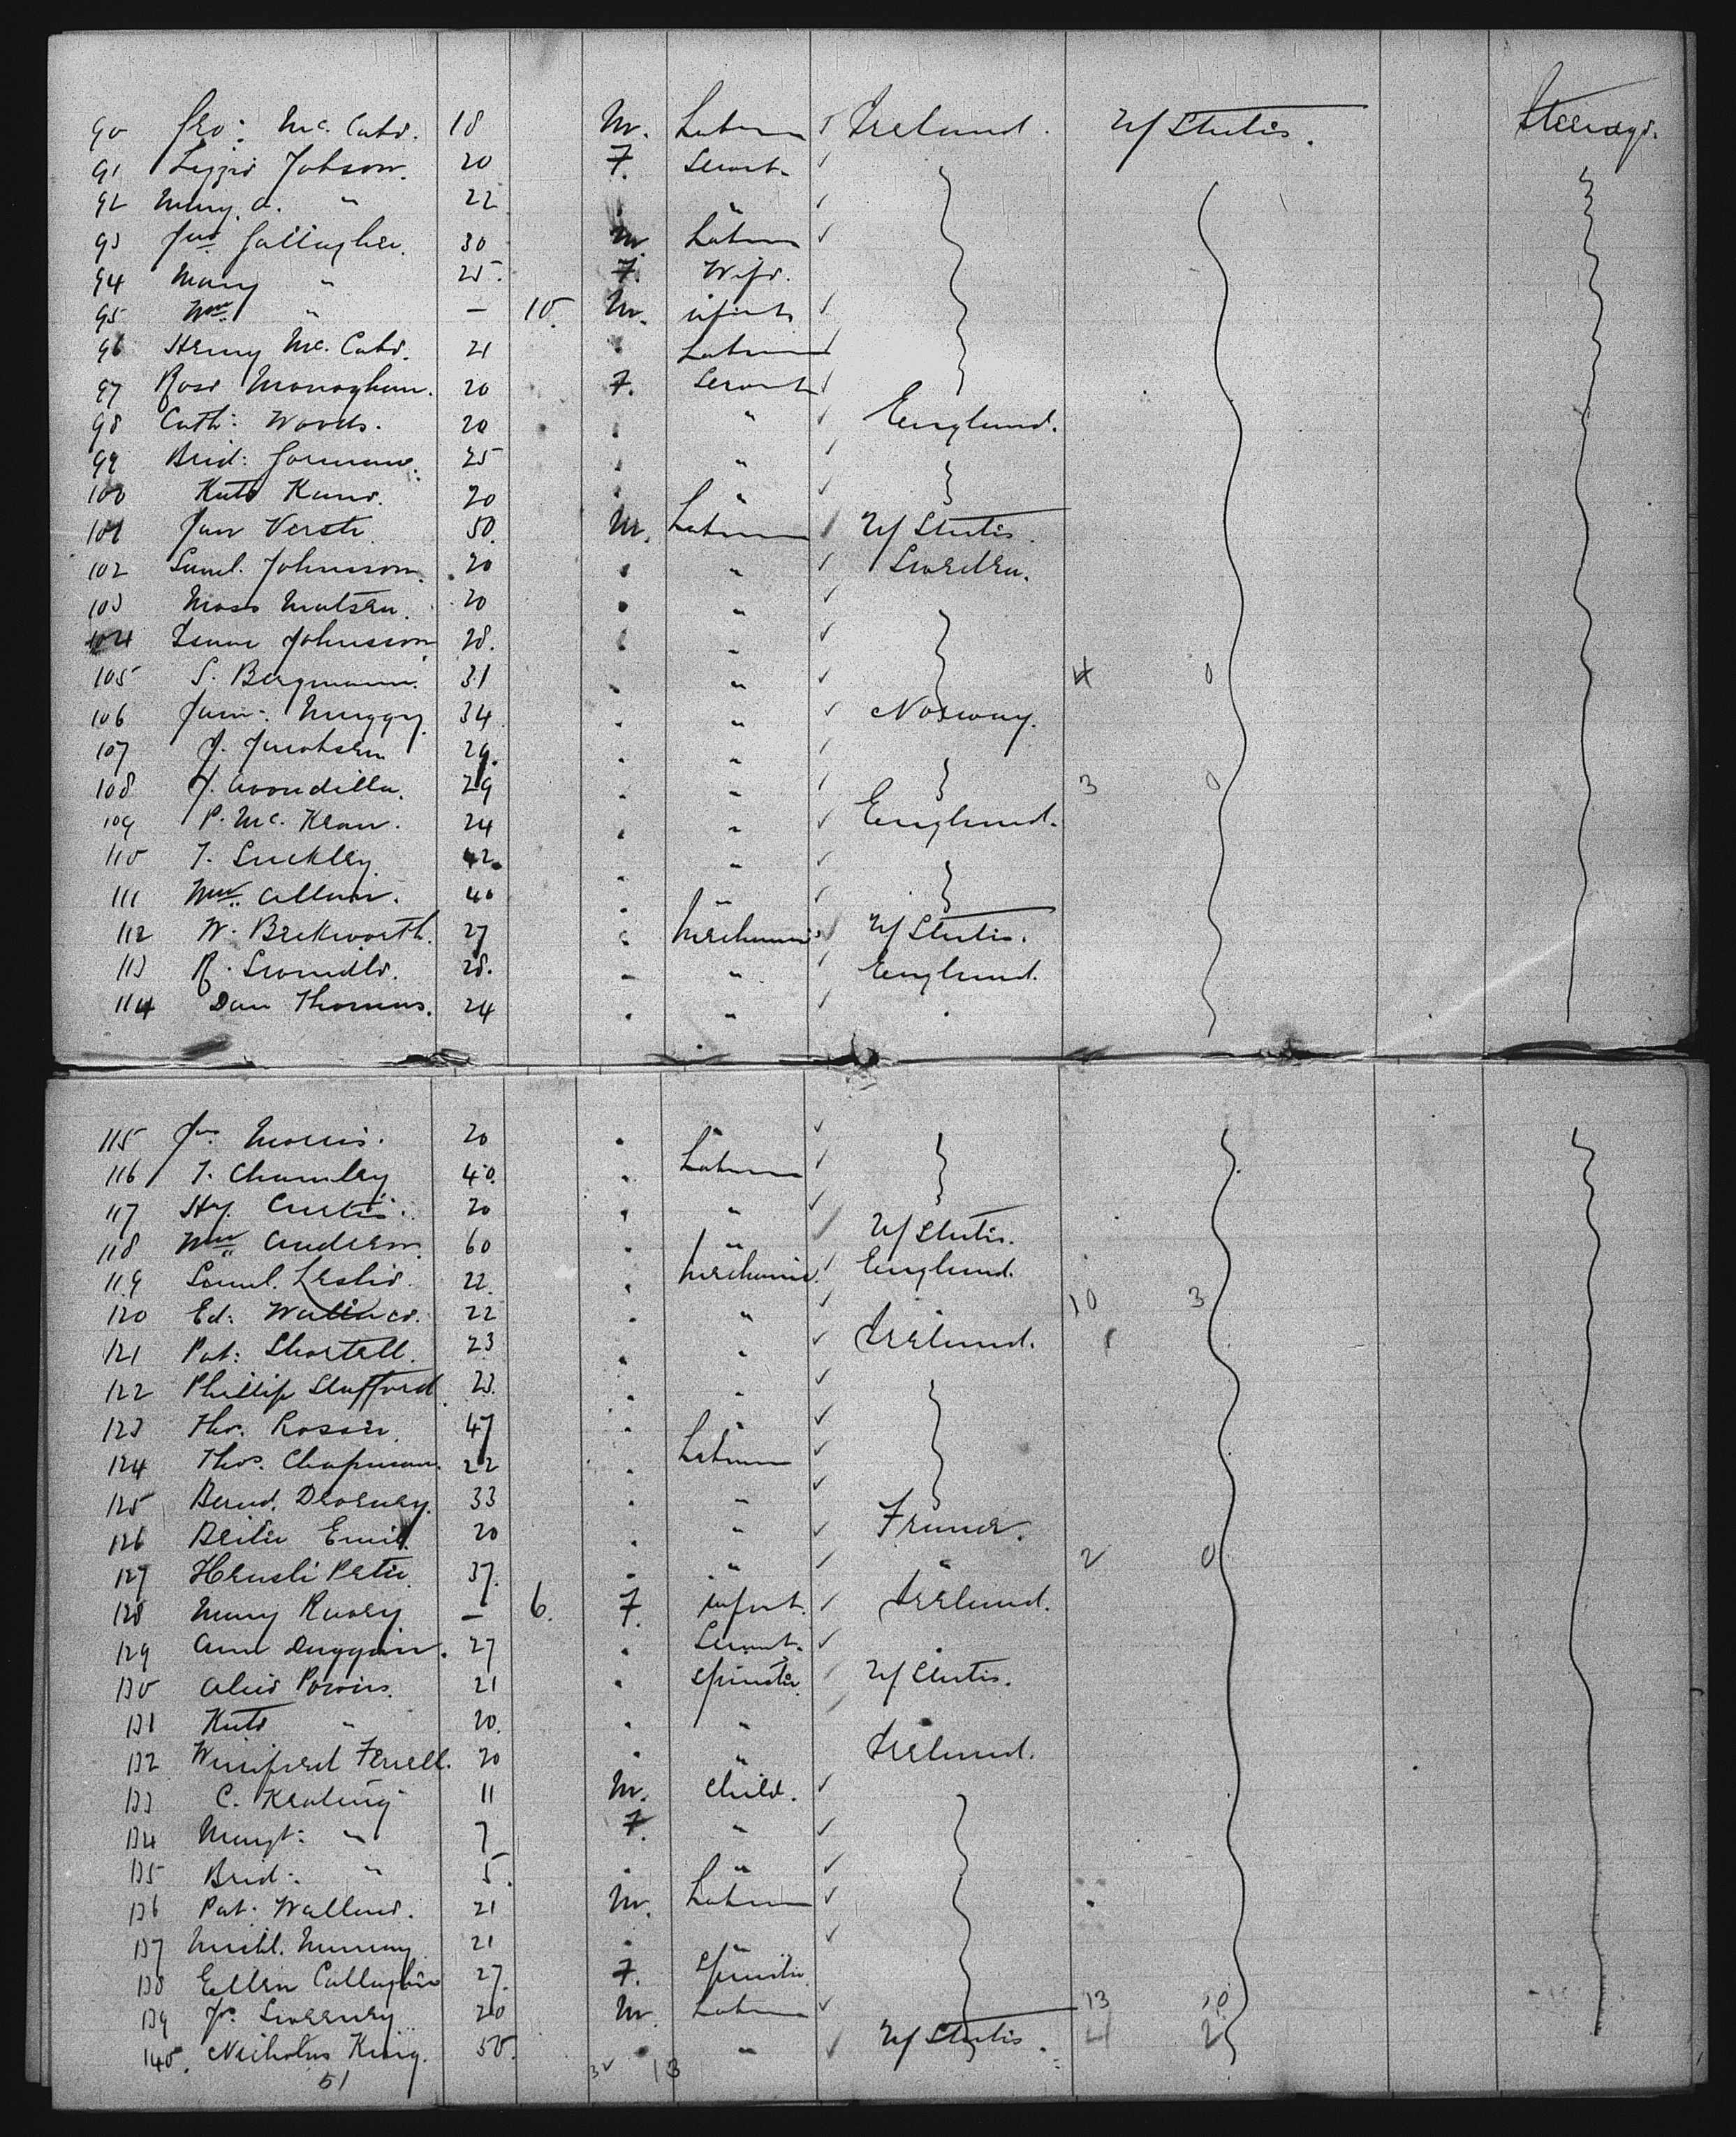 90 Geo: Mc. Cabe. 18 M. Laborer Ireland. U/States. Steerage.
91 Lizzie Jobson. 20 F. Servt.
92 Mary. A. " 22 . "
93 Jno Gallagher. 30 M Laborer
94 Mary " 25. F. Wife.
95 Wm. " — 10. M. infant
96 Henry Mc. Cabe. 21 . Laborer
97 Rose Monoghan. 20 F. Servant
98 Cath: Woods. 20 . " England.
99 Brid: Gorman. 25 . "
100 Kate Kane. 20 . "
101 Jan 50. M. Laborer U/States.
102 Saml. Johnson. 20 . " Sweden.
103 Moss Matsen. 20 . "
104 Johnsson 28. . "
105 S. Bergmann. 31 . " 4 0
106 34. . " Norway.
107 J. Jacobsen 29. . "
108 29 . " 3 0
109 P. Mc. Kean. 24 . " England.
110 T. Suckley. 42. . "
111 Wm. Allen. 40 . "
112 W. Beckworth. 27 . Mechanic U/States.
113 R. 28. " " England.
114 Dan Thomas. 24 . " .
115 Jas. Morris. 20 .
116 T. Chumley 40. . Laborer
117 Hy. Curtis. 20 . "
118 Wm Anderson. 60 . " U/States.
119 Saml. Leslie. 22. . Mechanic. England.
120 Ed: Wallace. 22 . " 10 3
121 Pat: Shortell. 23 . " Ireland.
122 Phillip Stafford 23. . "
123 Tho. 47 . "
124 Thos. Chapman. 22 . Laborer
125 Bernd. 33 . "
126 Emil. 20 . " France.
127 Peter 37. . " " 2 0
128 Mary — 6. F. infant. Ireland.
129 Ann Duggan. 27 . Servant. .
130 Alice Powers. 21 . Spinster. U/States.
131 Kate " 20. . " "
132 Winifred Ferrell. 20 . " Ireland.
133 C. Keating 11 M. child.
134 Margt: " 7 F. "
135 Brid: " 5. . "
136 Pat. Wallace. 21 M. Laborer
137 Michl. Murray. 21 . "
138 Ellen Callaghan 27. F. Spinster
139 Js. Sweeney. 20 M. Laborer 13 10
140. Nicholas King. 50. . " U/States. 4 2
51 32 13